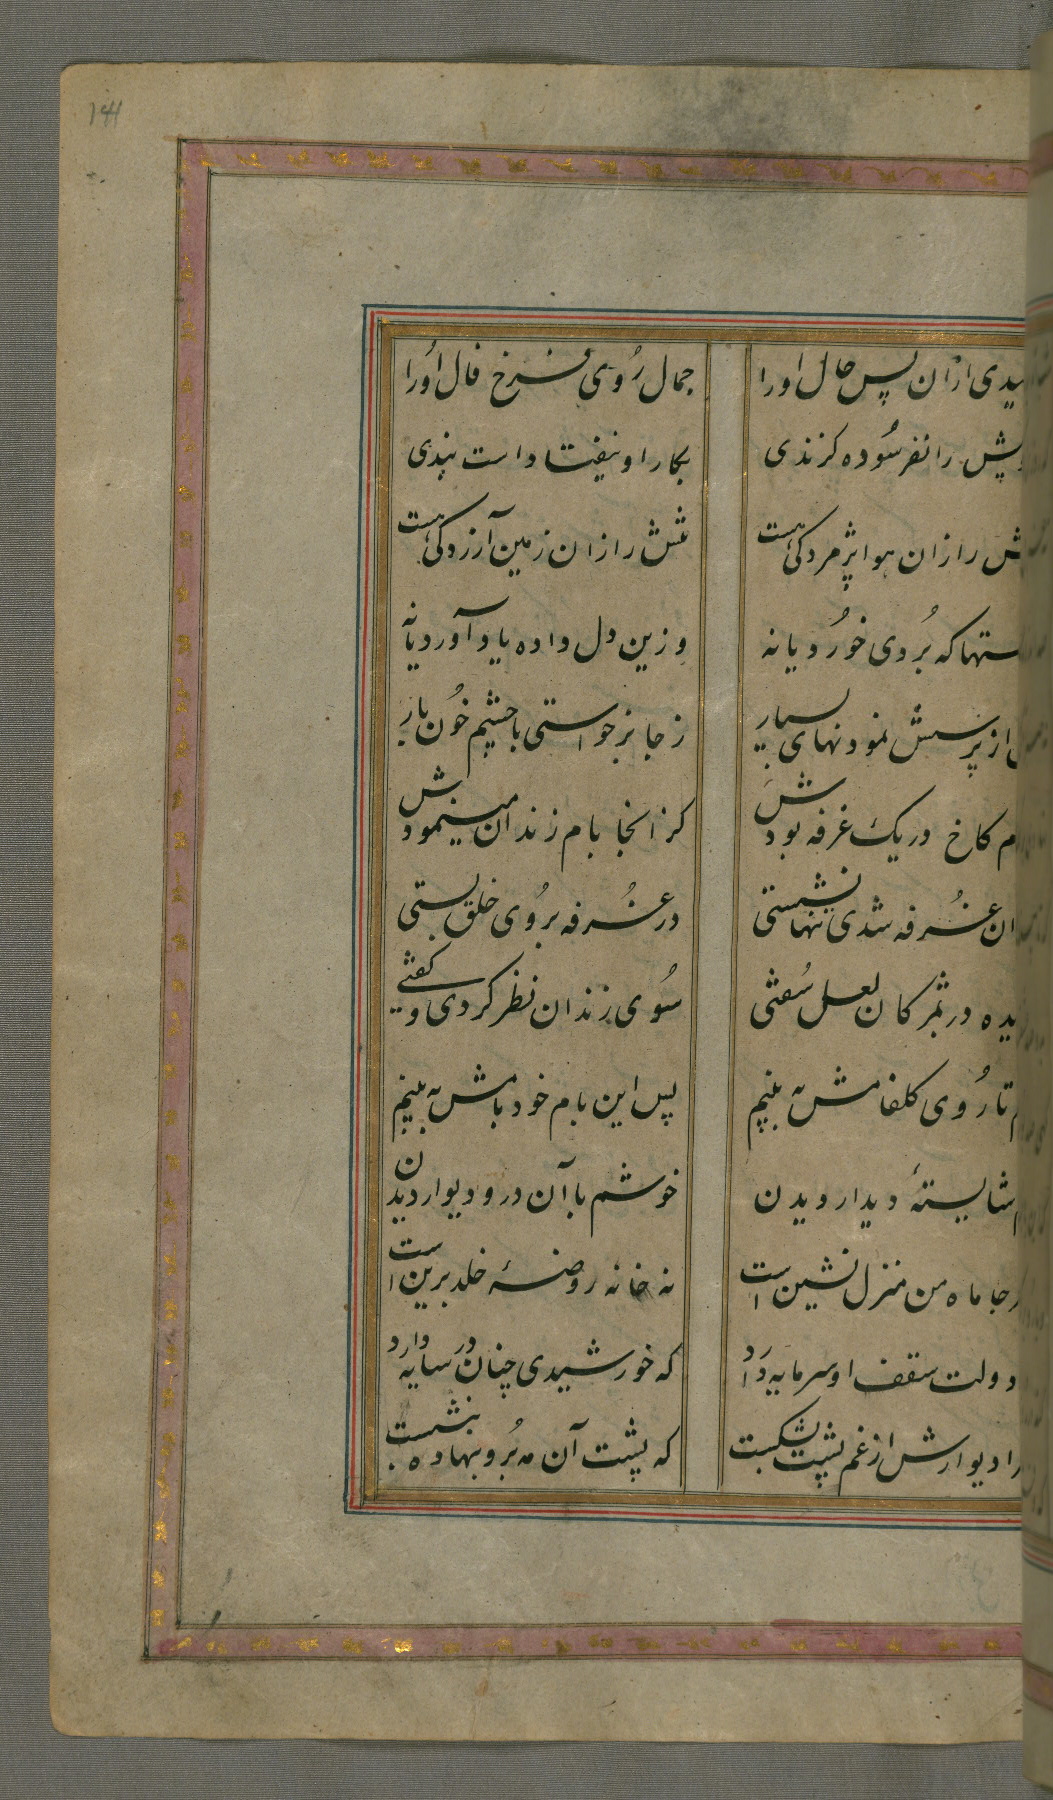 141
ازان پس حال اورا جمال روی فرخ فال اورا
را نفرسوده گزندی بکار او نیفتاداست بندی
را زان هوا پژمردگی هست تنش را زان زمین آزردگی هست
که بردی خورد یا نه وزین دل داده یاد آورد یا نه
از پرسش نمودنهای بسیار ز جا برخواستی با چشم خون بار
کاخ در یک غرفه بودش کز انجا بام زندان مینمودش
غرفه شدی تنها نشستی در غرفه بروی خلق بستی
در ثمرکان لعل سفتی سوی زندان نظر کردی و گفتی
تا روی گلفامش به بینم پس این بام خود بامش به بینم
شایستهٔ دیدار دیدن خوشم با آن در و دیوار دیدن
ماه من منزل نشین است نه خانه روضهٔ خلد برین است
دولت سقف او سرمایه دارد که خورشیدی چنان در سایه دارد
دیوارش از غم پشت بشکست که پشت آن مه برو بنهاده بنشست